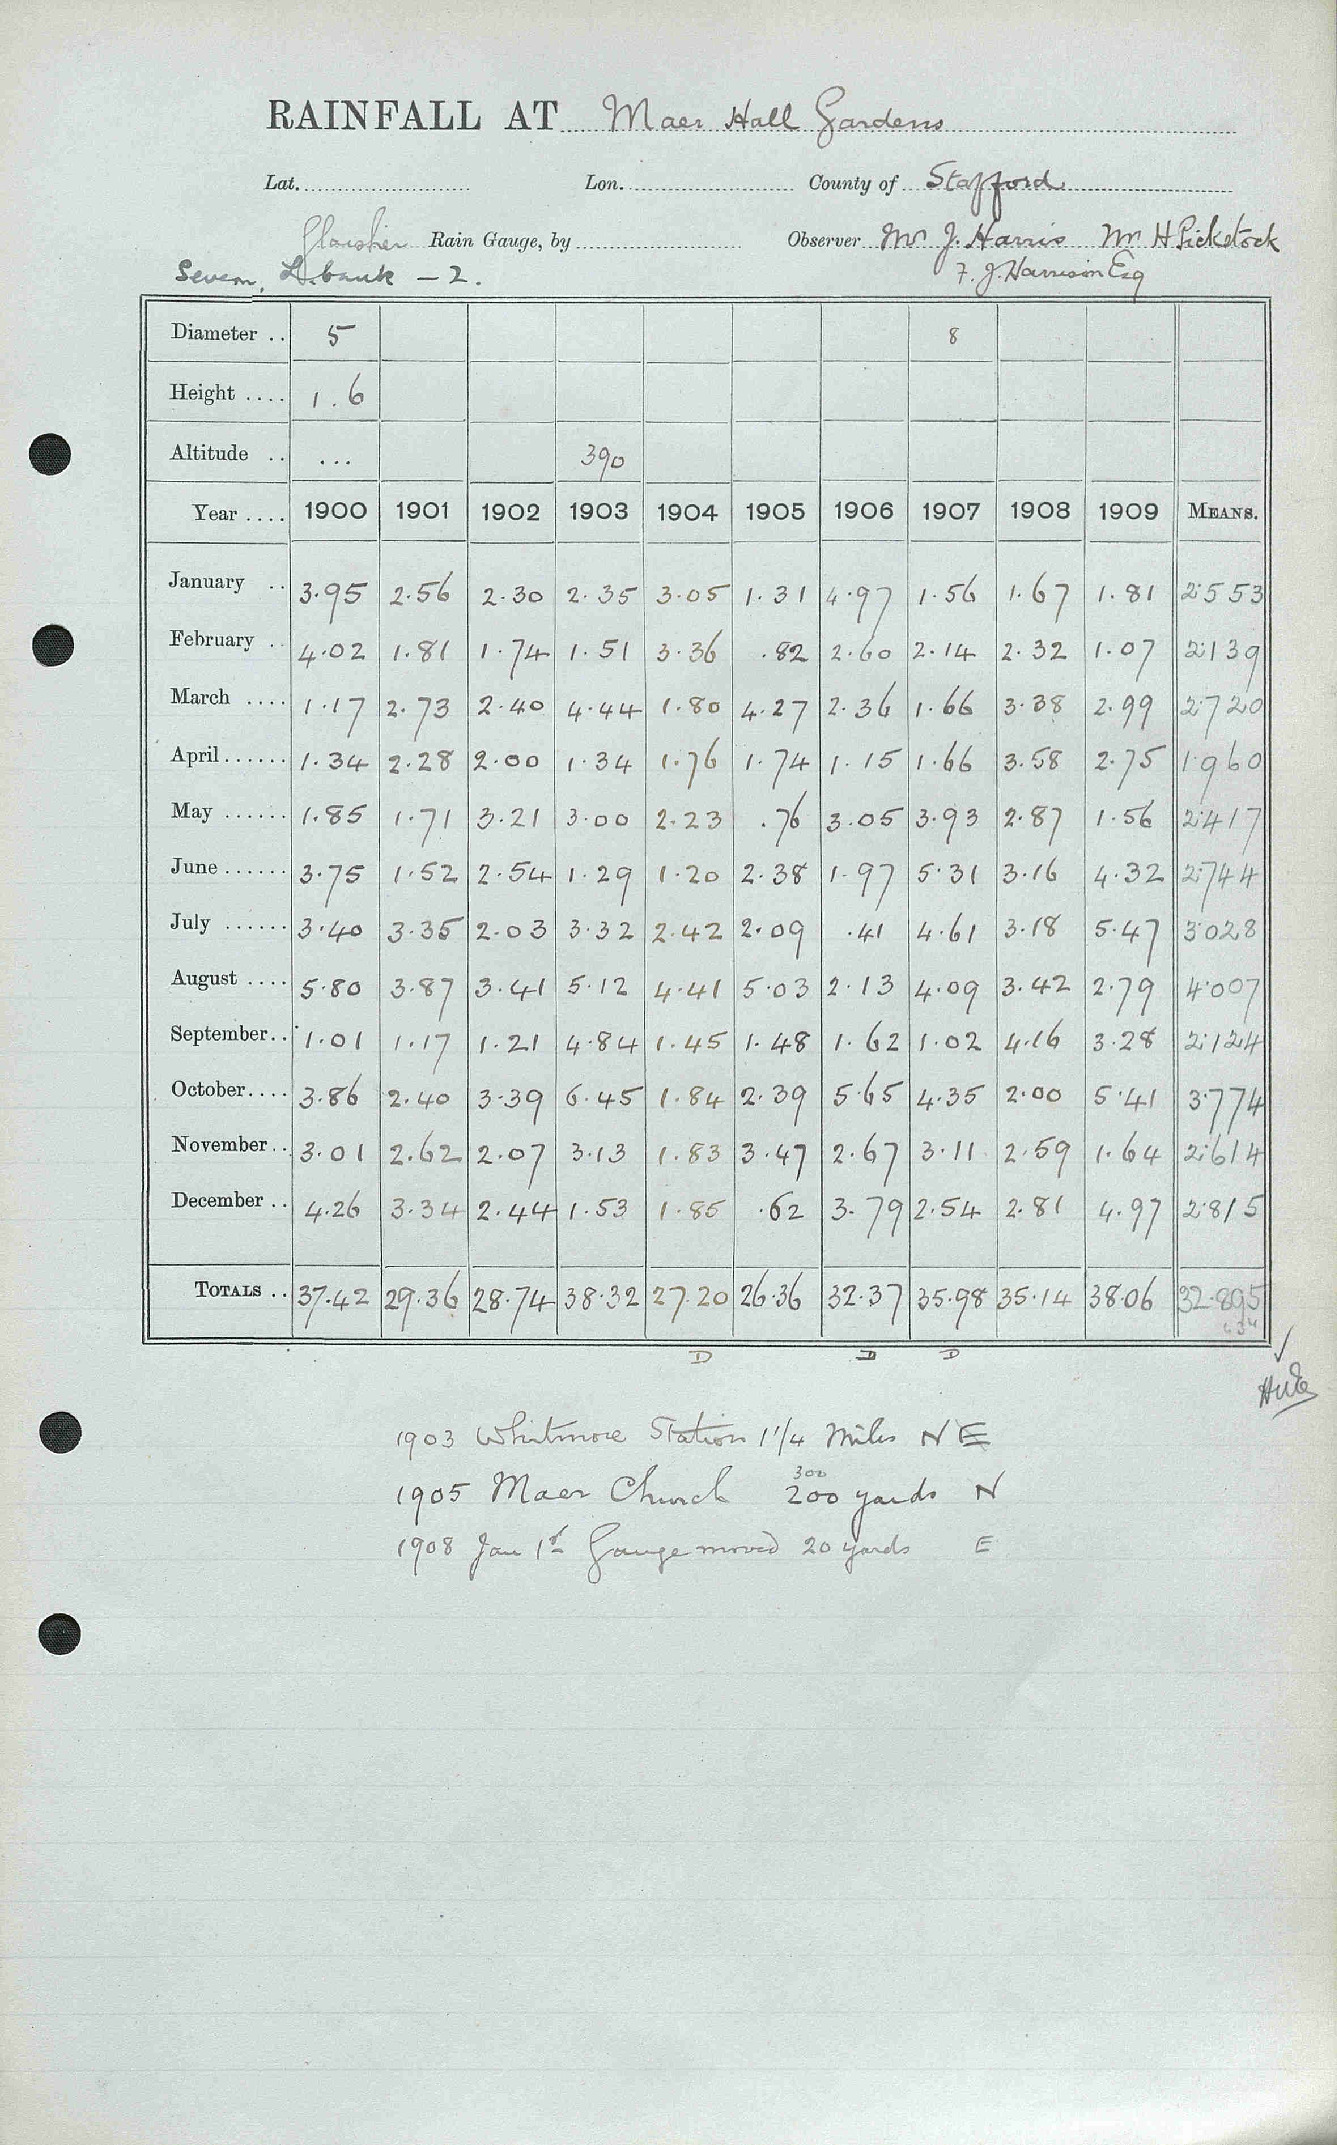 RAINFALL AT Maer Hall Gardens
Lat. Lon. County of Stafford
Glaisher Rain Gauge, by Observer Mr J. Harris Mr H Pickstock
Severn, L. bank – 2. F. J. Harrison Esq
Diameter .. 5 8
Height .... 1.6
Altitude .. ... 390
Year .... 1900 1901 1902 1903 1904 1905 1906 1907 1908 1909 MEANS.
January .. 3.95 2.56 2.30 2.35 3.05 1.31 4.97 1.56 1.67 1.81 2.553
February .. 4.02 1.81 1.74 1.51 3.36 .82 2.60 2.14 2.32 1.07 2.139
March .... 1.17 2.73 2.40 4.44 1.80 4.27 2.36 1.66 3.38 2.99 2.720
April...... 1.34 2.28 2.00 1.34 1.76 1.74 1.15 1.66 3.58 2.75 1.960
May ...... 1.85 1.71 3.21 3.00 2.23 .76 3.05 3.93 2.87 1.56 2.417
June ...... 3.75 1.52 2.54 1.29 1.20 2.38 1.97 5.31 3.16 4.32 2.744
July ...... 3.40 3.35 2.03 3.32 2.42 2.09 .41 4.61 3.18 5.47 3.028
August .... 5.80 3.87 3.41 5.12 4.41 5.03 2.13 4.09 3.42 2.79 4.007
September.. 1.01 1.17 1.21 4.84 1.45 1.48 1.62 1.02 4.16 3.28 2.124
October.... 3.86 2.40 3.39 6.45 1.84 2.39 5.65 4.35 2.00 5.41 3.774
November.. 3.01 2.62 2.07 3.13 1.83 3.47 2.67 3.11 2.59 1.64 2.614
December .. 4.26 3.34 2.44 1.53 1.85 .62 3.79 2.54 2.81 4.97 2.815
TOTALS .. 37.42 29.36 28.74 38.32 27.20 26.36 32.37 35.98 35.14 38.06 32.895
D D D
1903 Whitmore Station 1 1/4 Miles NE
300
1905 Maer Church 200 yards N
1908 Jan 1st Gauge moved 20 yards E